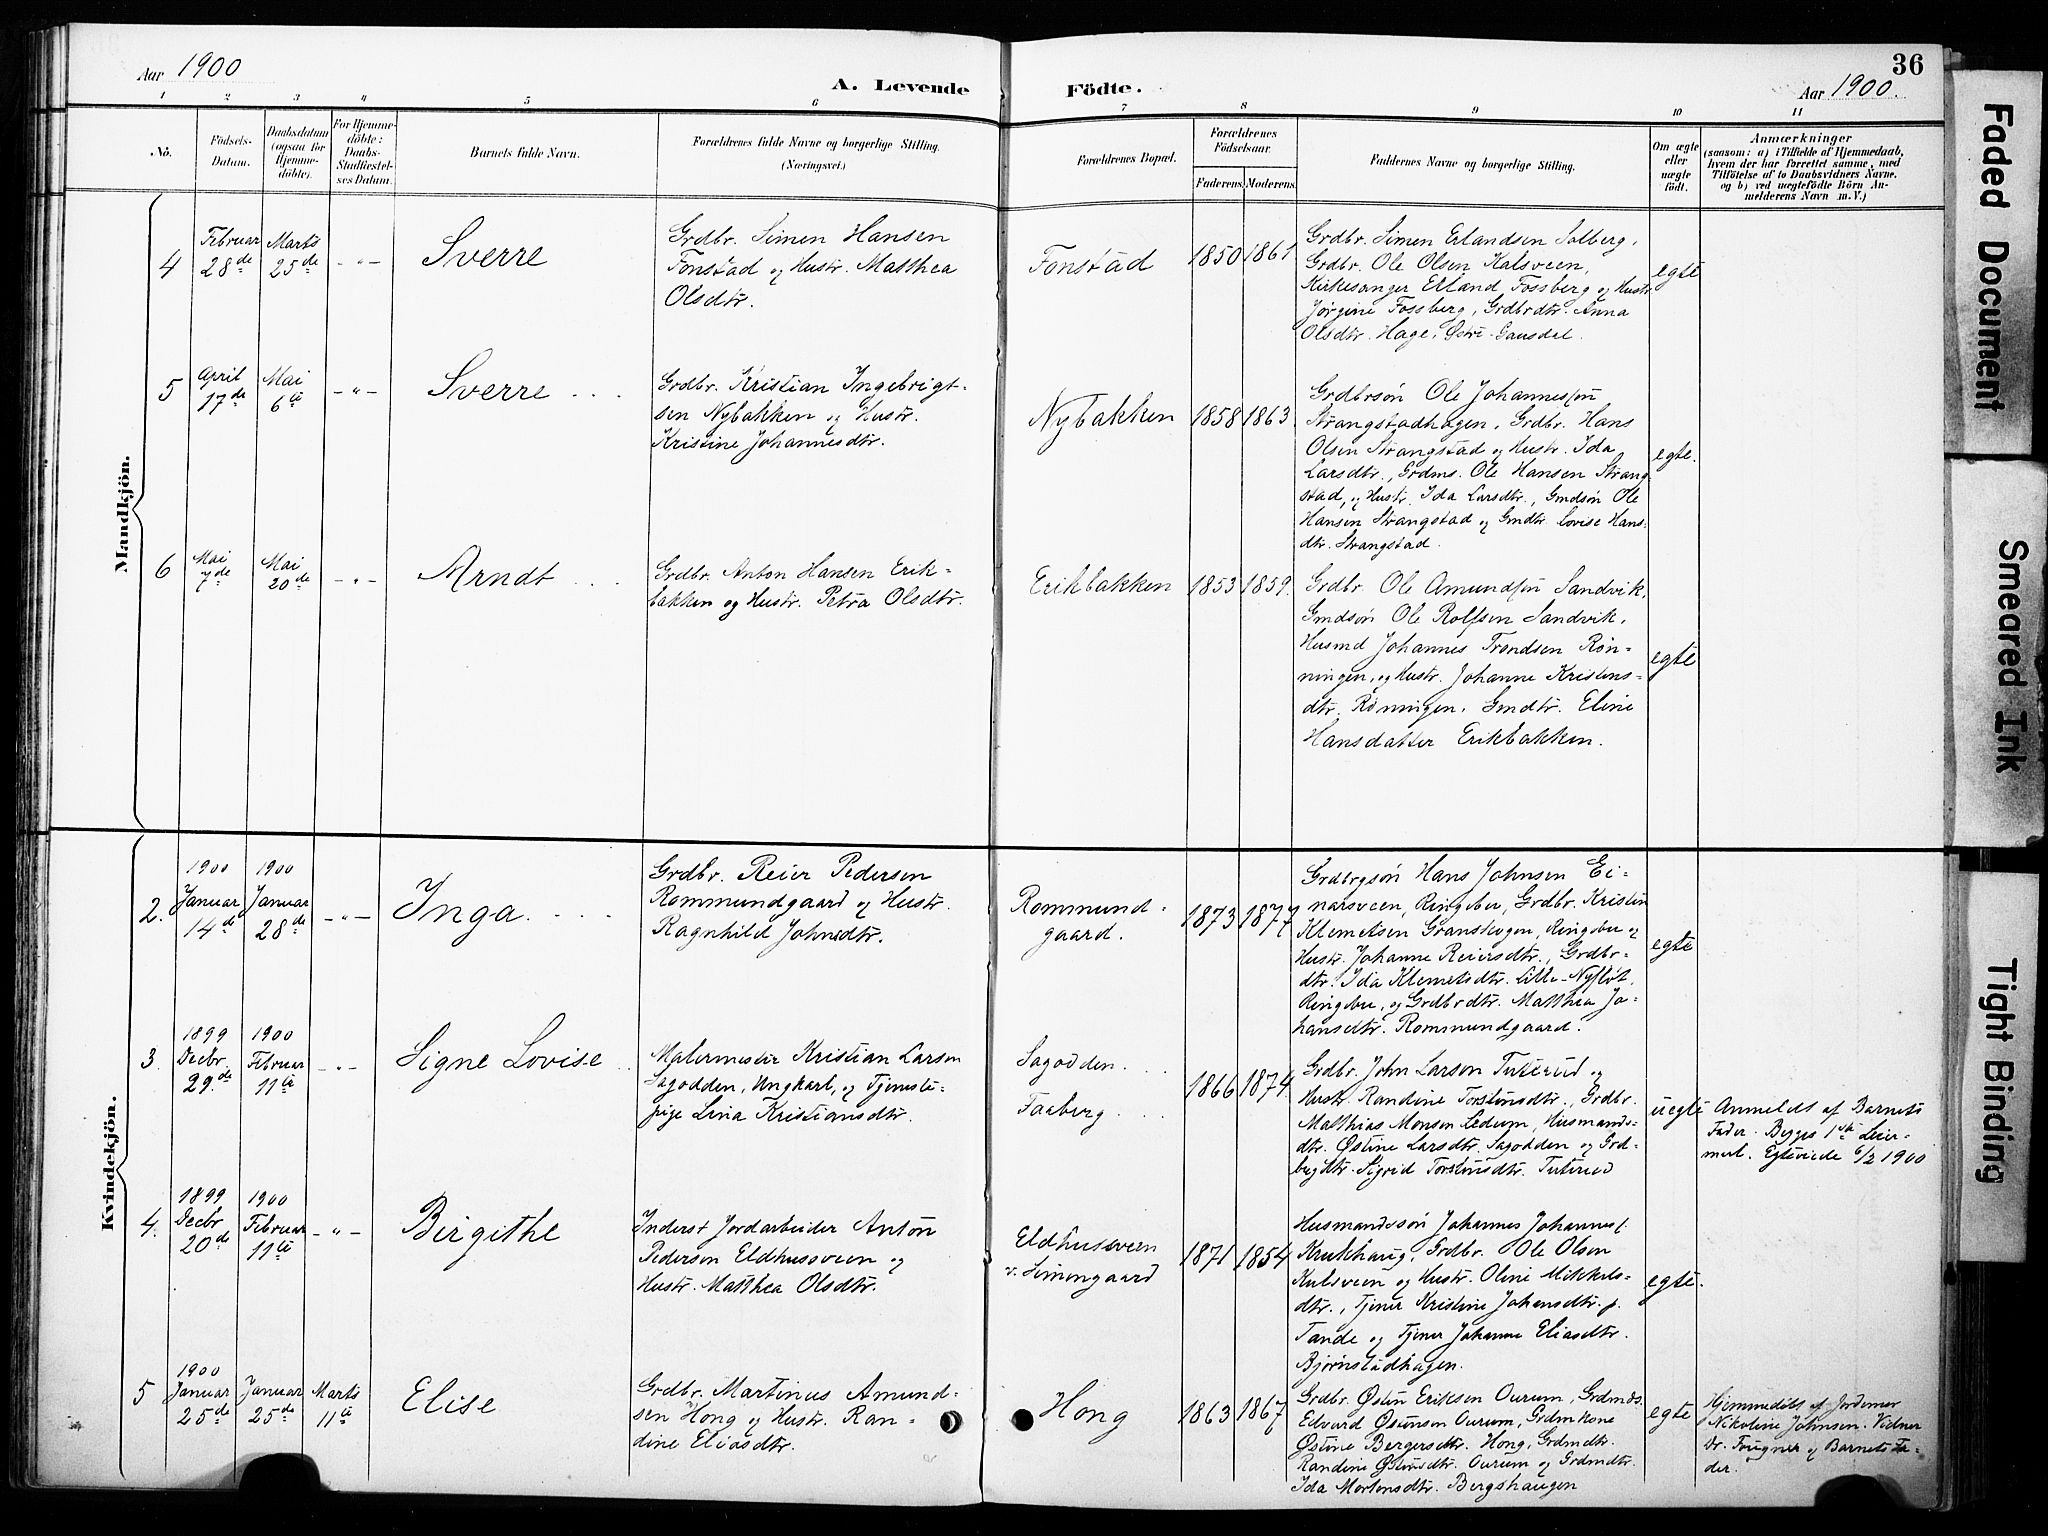 Aar 1900
A. Levende Födte.
36
Aar 1900.
1 2 3 4 5 6 7 8 9 10 11
No.
Födsels-
Datum.
Daabsdatum
(ogsaa for
Hjemme-
döbte).
For Hjemme-
döbte:
Daabs-
Stadfæstel-
ses Datum.
Barnets fulde Navn.
Forældrenes fulde Navne og borgerlige Stilling.
(Næringsvei.)
Forældrenes Bopæl.
Forældrenes
Födselsaar.
Faderens.
Moderens.
Faddernes Navne og borgerlige Stilling.
Om ægte
eller
uægte
födt.
Anmærkninger
(saasom: a) i Tilfælde af Hjemmedaab,
hvem der har forrettet samme, med
Tilföielse af to Daabsvidners Navne,
og b) ved uægtefödte Börn An-
melderens Navn m.V.)
Mandkjön.
4
Februar
28de
Marts
25de
-"-
Sverre
Grdbr. Simen Hansen
Fonstad og Hustr. Matthea
Olsdtr.
Fonstad
1850
1861
Grdbr. Simen Erlandsen Solberg,
Grdbr. Ole Olsen Kalsveen,
Kirkesanger Erland Fossberg og Hustr
Jørgine Fossberg, Grdbrdtr. Anna
Olsdtr. Hage, Østre-Gausdal.
egte
5
April
17de
Mai
6te
-"-
Sverre
Grdbr. Kristian Ingebrigt-
sen Nybakken og Hustr.
Kristine Johannesdtr.
Nybakken
1858
1863
Grdbrsøn Ole Johannessøn
Strangstadhagen, Grdbr. Hans
Olsen Strangstad og Hustr. Ida
Larsdtr., Grdms. Ole Hansen Strang-
stad, og Hustr. Ida Larsdtr., Gmdsøn Ole
Hansen Strangstad og Gmdtr. Lovise Hans-
dtr. Strangstad.
egte.
6
Mai
7de
Mai
20de
-"-
Arndt
Grdbr. Anton Hansen Erik-
bakken og Hustr. Petra Olsdtr.
Erikbakken
1853
1859.
Grdbr. Ole Amundsøn Sandvik,
Gmdsøn Ole Rolfsen Sandvik,
Husmd Johannes Trondsen Røn-
ningen, og Hustr. Johanne Kristens-
dtr. Rønningen, Gmdtr. Eline
Hansdatter Erikbakken.
egte
Kvindekjön.
2.
1900
Januar
14de
1900
Januar
28de
-"-
Inga
Grdbr. Reier Pedersen
Rommundgaard og Hustr.
Ragnhild Johnsdtr.
Rommund-
gaard.
1873
1877
Grdbrgsøn Hans Johnsen Ei-
narsveen, Ringebu, Grdbr. Kristin
Klemetsen Granskogen, Ringebu og
Hustr. Johanne Reiersdtr., Grdbr-
dtr. Ida Klemetsdtr. Lille-Nyfløt,
Ringebu, og Grdbrdtr. Matthea Jo-
hansdtr. Rommundgaard.
egte
3.
1899
Decbr.
29de
1900
Februar
11te
-"-
Signe Lovise
Malermester Kristian Larsen
Sagodden, Ungkarl, og Tjeneste-
pige Lina Kristiansdtr.
Sagodden
Faaberg
1866
1874.
Grdbr. John Larsen Tuterud og
Hustr. Randine Torstensdtr., Grdbr.
Matthias Monsen Ledum, Husmands-
dtr. Østine Larsdtr. Sagodden og Grd-
brgdtr. Sigrid Torstensdtr. Tuterud
uegte
Anmeldt af Barnets
Fader. Begges 1ste Leier-
maal. Egteviede 6/2 1900
4.
1899
Decbr
20de
1900
Februar
11te
-"-
Birgithe
Inderst Jordarbeider Anton
Pedersen Eldhussveen og
Hustr. Matthea Olsdtr.
Eldhussveen
v. Simengaard
1871
1854
Husmandssøn Johannes Johannes.
Krukhaug, Grdbr. Ole Olsen
Kalsveen og Hustr. Oline Mikkels-
dtr., Tjener Kristine Johansdtr. p.
Tande og Tjener Johanne Eliasdtr.
Bjørnstadhagen.
egte.
5
1900
Januar
25de
Januar
25de
Marts
11te
Elise
Grdbr. Martinus Amund-
sen Hong og Hustr. Ran-
dine Eliasdtr.
Hong
1863
1867
Grdbr. Østen Eriksen Aurum, Grdmds.
Edvard Østensen Aurum, Grdmkone
Østine Bergersdtr. Hong, Grdmdtr.
Randine Østensdtr. Aurum og Grdmdtr.
Ida Mortensdtr. Bergshaugen
egte
Hjemmedøbt af Jordemor
Nikoline Johnsen. Vidner
Dr. Fougner og Barnets Fa-
der.
Faded Document
Smeared Ink
Tight Binding